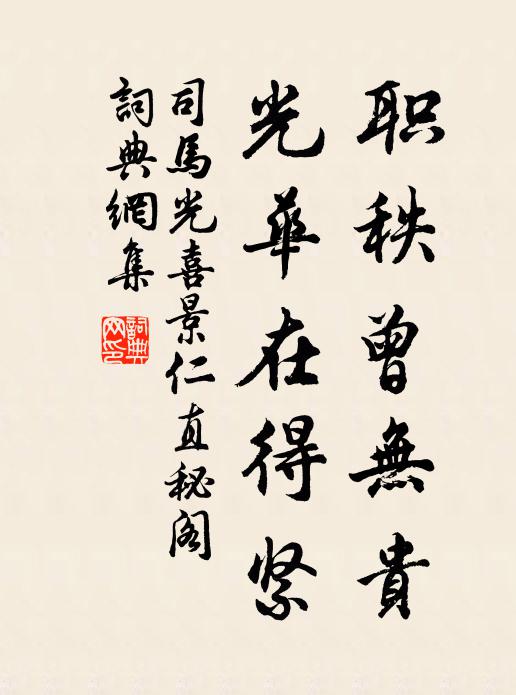 职秩曾無貴
光華在得紧
司馬光喜景仁直秘阁
詞典網集
詞典网印